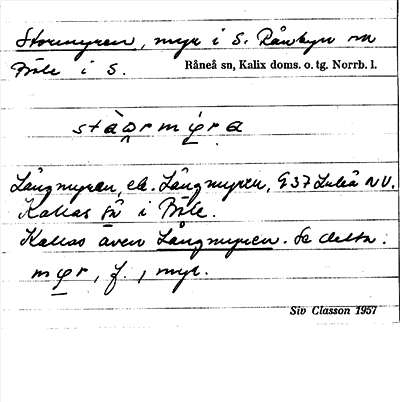 Stormyren, myr i S. Rånebyn o
Böle i S. Råneå sn, Kalix doms. o. tg. Norrb. l.
stàormýra
Långmyran, el. Långmyren, G 37 Luleå NV.
Kallas så i Böle.
Kallas även Långmyren. Se detta.
myr, f., myr.
Siv Classon 1957